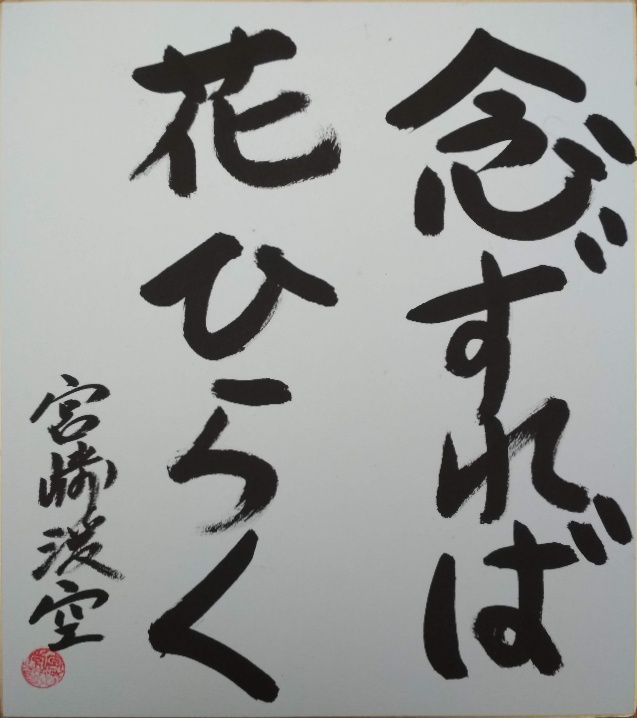 念ずれば
花ひらく
宮崎淡空